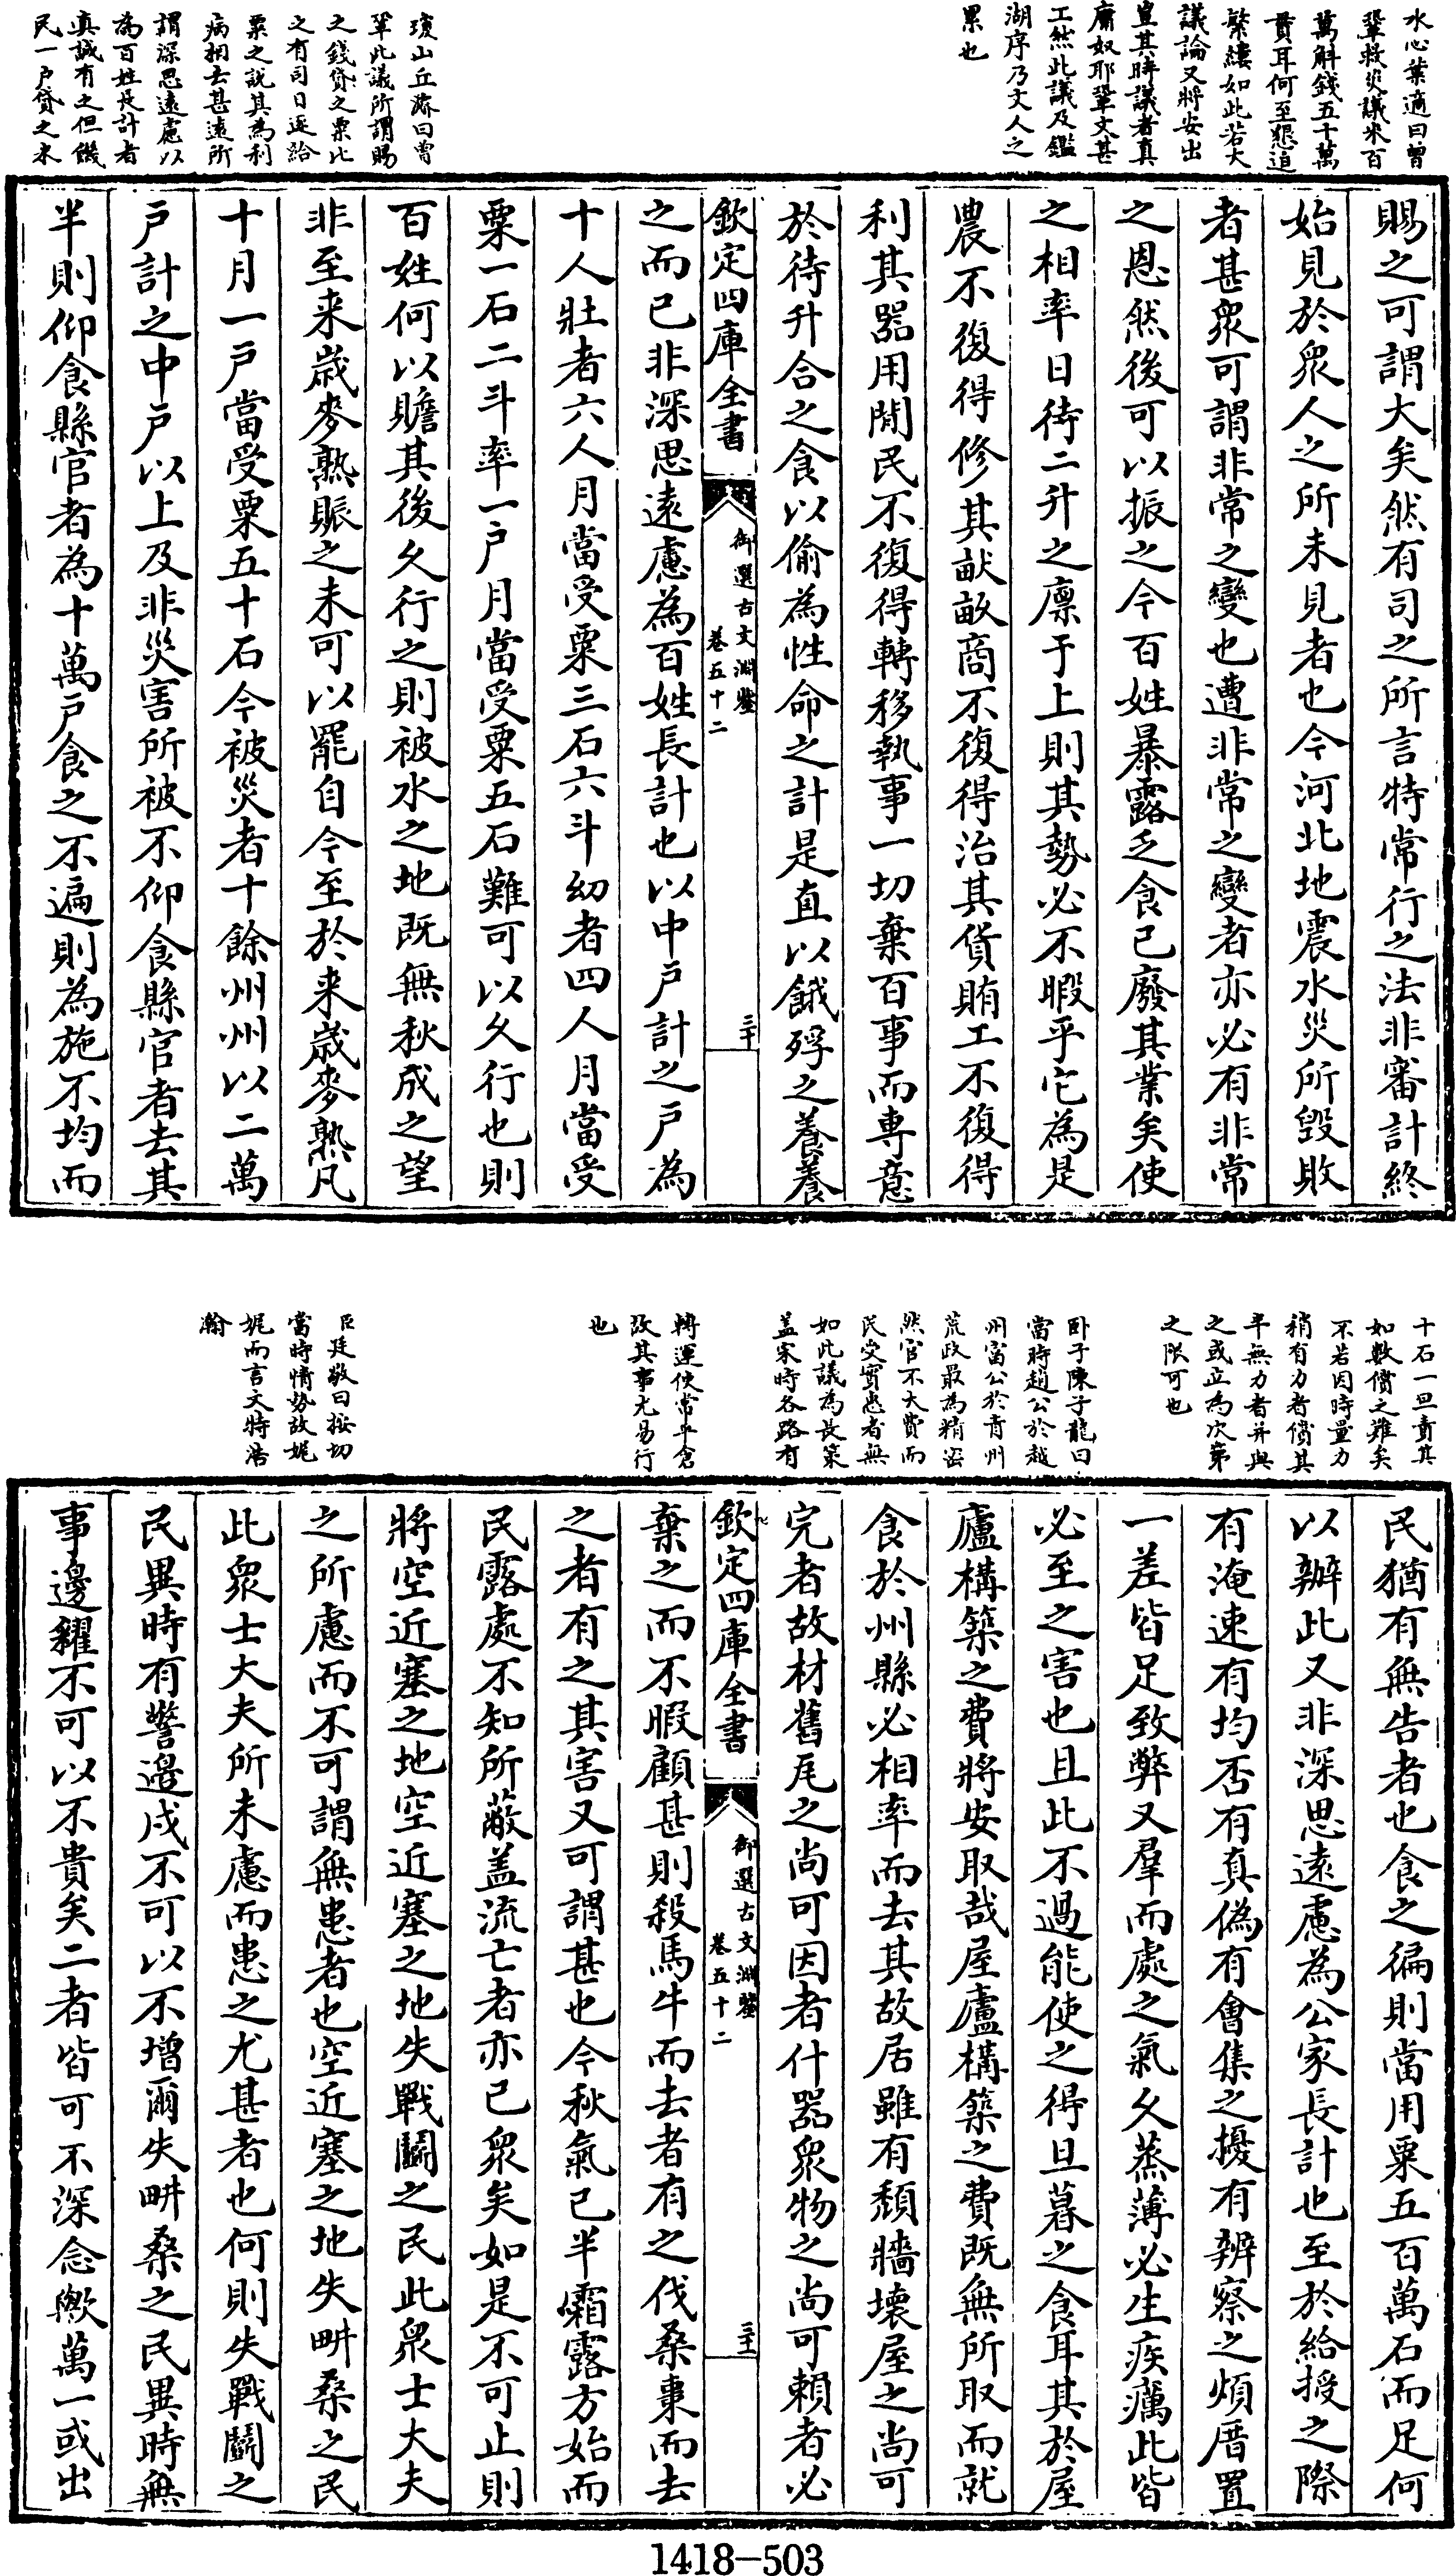 水心葉適曰曾
鞏救災議米百
萬斛錢五十萬
貫耳何至懇迫
繁縷如此若大
議論又將安出
豈其時議者真
庸奴耶鞏文甚
工然此議及鑑
湖序乃文人之
累也
瓊山丘濬曰曾
鞏此議所謂賜
之錢貸之粟比
之有司日逐給
粟之說其為利
病相去甚遠所
謂深思遠慮以
為百姓長計者
真誠有之但饑
民一户貸之米
賜之可謂大矣然有司之所言特常行之法非審計終
始見於衆人之所未見者也今河北地震水災所毀敗
者甚衆可謂非常之變也遭非常之變者亦必有非常
之恩然後可以振之今百姓暴露乏食已廢其業矣使
之相率日待二升之廩于上則其勢必不暇乎它為是
農不復得修其畎畝商不復得治其貨賄工不復得
利其器用閒民不復得轉移執事一切棄百事而專意
於待升合之食以偷為性命之計是直以餓殍之養養
欽定四庫全書
御選古文淵鑒
卷五十二
三十
之而已非深思遠慮為百姓長計也以中户計之户為
十人壯者六人月當受粟三石六斗幼者四人月當受
粟一石二斗率一户月當受粟五石難可以久行也則
百姓何以贍其後久行之則被水之地既無秋成之望
非至来歲麥熟賑之未可以罷自今至於来歲麥熟凡
十月一户當受粟五十石今被災者十餘州州以二萬
户計之中户以上及非災害所被不仰食縣官者去其
半則仰食縣官者為十萬户食之不遍則為施不均而
十石一旦責其
如數償之難矣
不若因時量力
稍有力者償其
半無力者并與
之或立為次第
之限可也
卧子陳子龍曰
當時趙公於越
州富公於青州
荒政最為精密
然官不大費而
民受實惠者無
如此議為長策
盖宋時各路有
轉運使常平倉
故其事尤易行
也
臣廷敬曰按切
當時情勢故娓
娓而言文特浩
瀚
民猶有無告者也食之徧則當用粟五百萬石而足何
以辦此又非深思遠慮為公家長計也至於給授之際
有淹速有均否有真偽有會集之擾有辨察之煩厝置
一差皆足致弊又羣而處之氣久蒸薄必生疾癘此皆
必至之害也且此不過能使之得旦暮之食耳其於屋
廬構築之費將安取哉屋廬構築之費既無所取而就
食於州縣必相率而去其故居雖有頹牆壞屋之尚可
完者故材舊瓦之尚可因者什器衆物之尚可賴者必
欽定四庫全書
御選古文淵鑒
卷五十二
三十一
棄之而不暇顧甚則殺馬牛而去者有之伐桑棗而去
之者有之其害又可謂甚也今秋氣已半霜露方始而
民露處不知所蔽盖流亡者亦已衆矣如是不可止則
將空近塞之地空近塞之地失戰鬭之民此衆士大夫
之所慮而不可謂無患者也空近塞之地失畊桑之民
此衆士大夫所未慮而患之尤甚者也何則失戰鬭之
民異時有警邊戍不可以不增爾失畊桑之民異時無
事邊糴不可以不貴矣二者皆可不深念歟萬一或出
1418-503